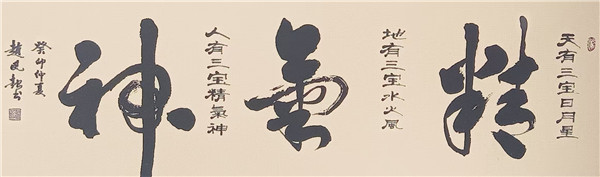 天有三宝日月星
精
地有三宝水火风
氣
人有三宝精氣神
神
癸卯仲夏